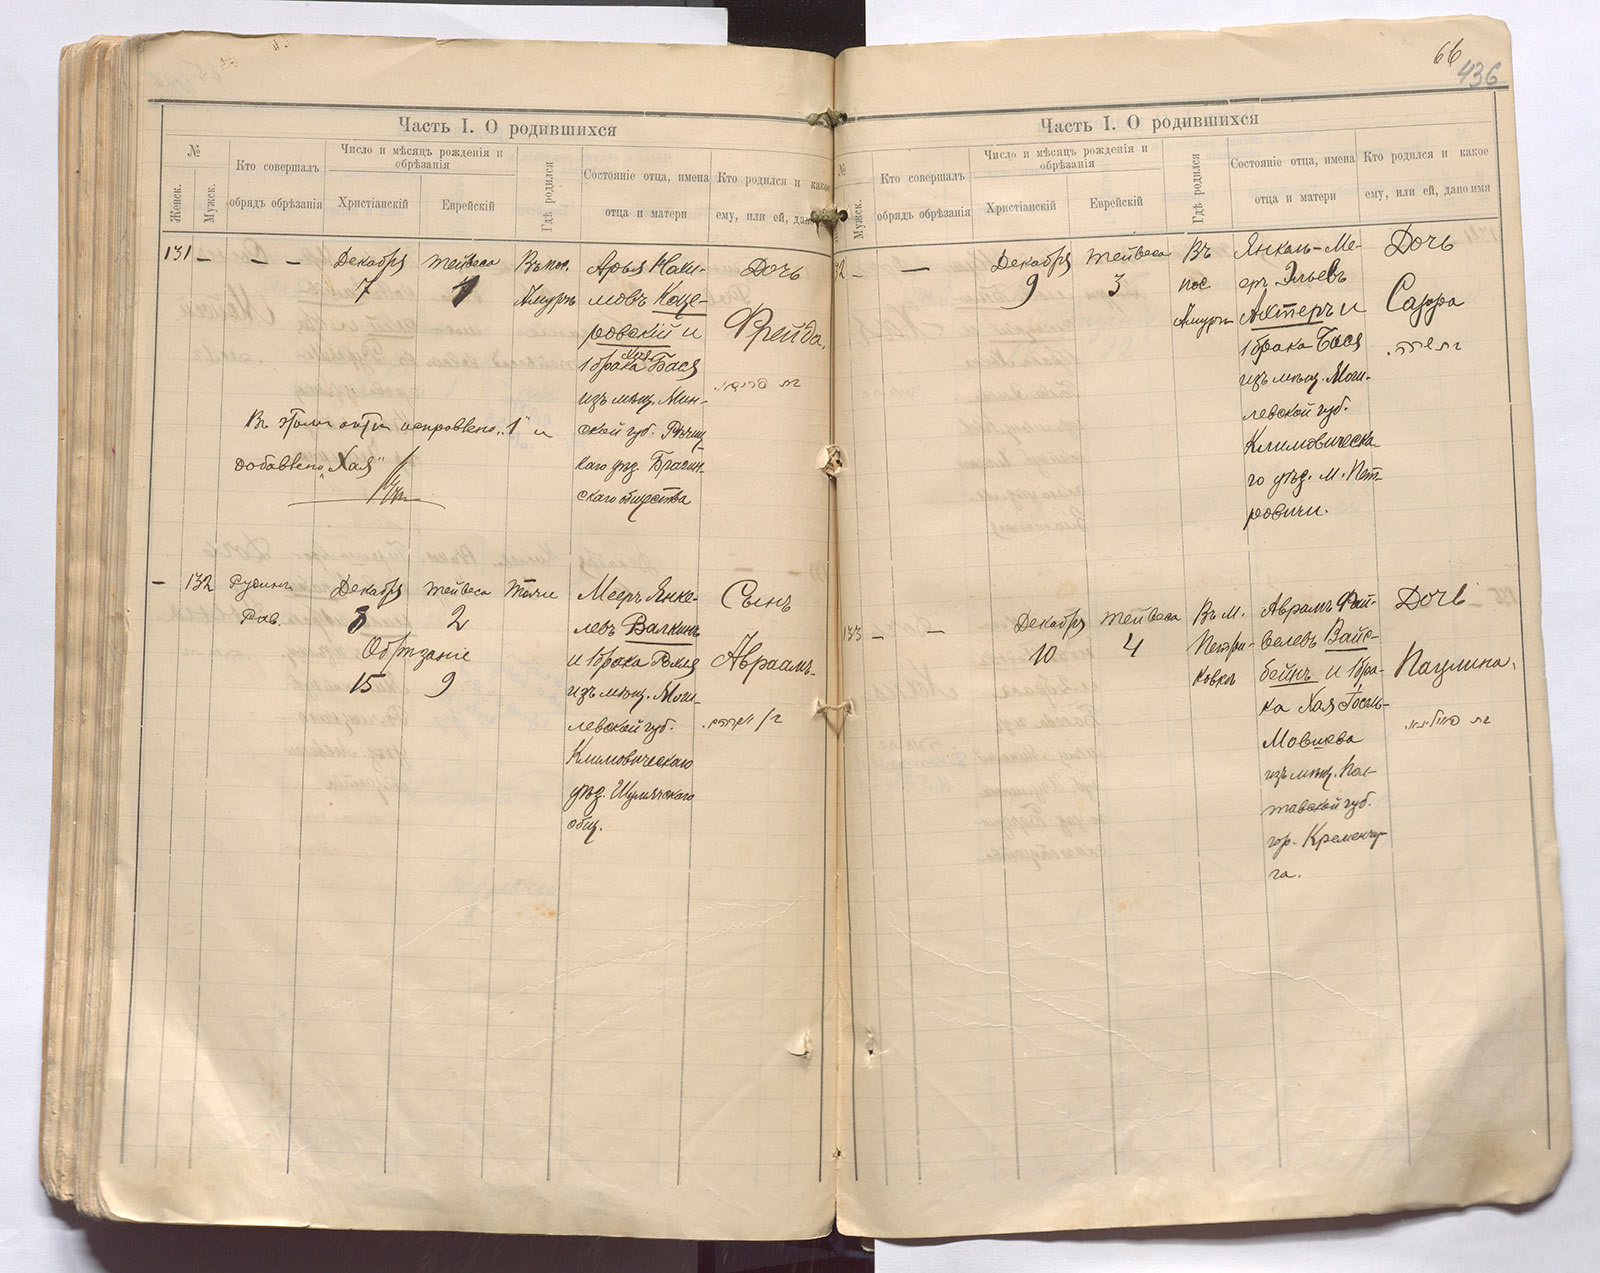 66
436
Часть I. О родившихся
№
Женск.
Мужск.
Кто совершалъ
обрядъ обрѣзанія
Число и мѣсяцъ рожденія и
обрѣзанія
Христіанскій
Еврейскій
Гдѣ родился
Состояніе отца, имена
отца и матери
Кто родился и какое
ему, или ей, дано
131 — — —
Декабря
7
Тейвеса
1
Въ пос.
Амуръ
Арья
мовъ Каце-
ровскій и
Хая
1 брака Бася
изъ мѣщ. Мин-
ской губ. Рѣчиц
каго уѣзд. Брагин-
скаго общества
Дочь
Фрейда.
Въ этомъ актѣ исправлено „1" и
добавлено „Хая"
— 132
Рубинъ
Рав.
Декабря
8
Тейвеса
2
Обрѣзаніе
15 9
Тамъ
Мееръ Янке-
левъ Валкинъ
и 1 брака
изъ мѣщ. Моги-
левской губ.
Климовическаго
уѣзд. Шумячскаго
общ.
Сынъ
Авраамъ.
Часть I. О родившихся
№
Мужск.
Кто совершалъ
обрядъ обрѣзанія
Число и мѣсяцъ рожденія и
обрѣзанія
Христіанскій
Еврейскій
Гдѣ родился
Состояніе отца, имена
отца и матери
Кто родился и какое
ему, или ей, дано имя
32 — —
Декабря
9
Тейвеса
3
Въ
пос
Амуръ
Янкель-Ме-
еръ Эльевъ
Ахтеръ и
1 брака Бася
изъ мѣщ. Моги-
левской губ.
Климовическа-
го уѣзд. м. Пет-
ровичи.
Дочь
Сарра
133 — —
Декабря
10
Тейвеса
4
Въ м.
Петри-
ковкѣ
Аврамъ Фай-
велевъ Вайс-
бейнъ и 1 бра-
ка Хая Госель-
Мовшева
изъ мѣщ. Пол-
тавской губ.
гор. Кременчу-
га.
Дочь
Паулина.